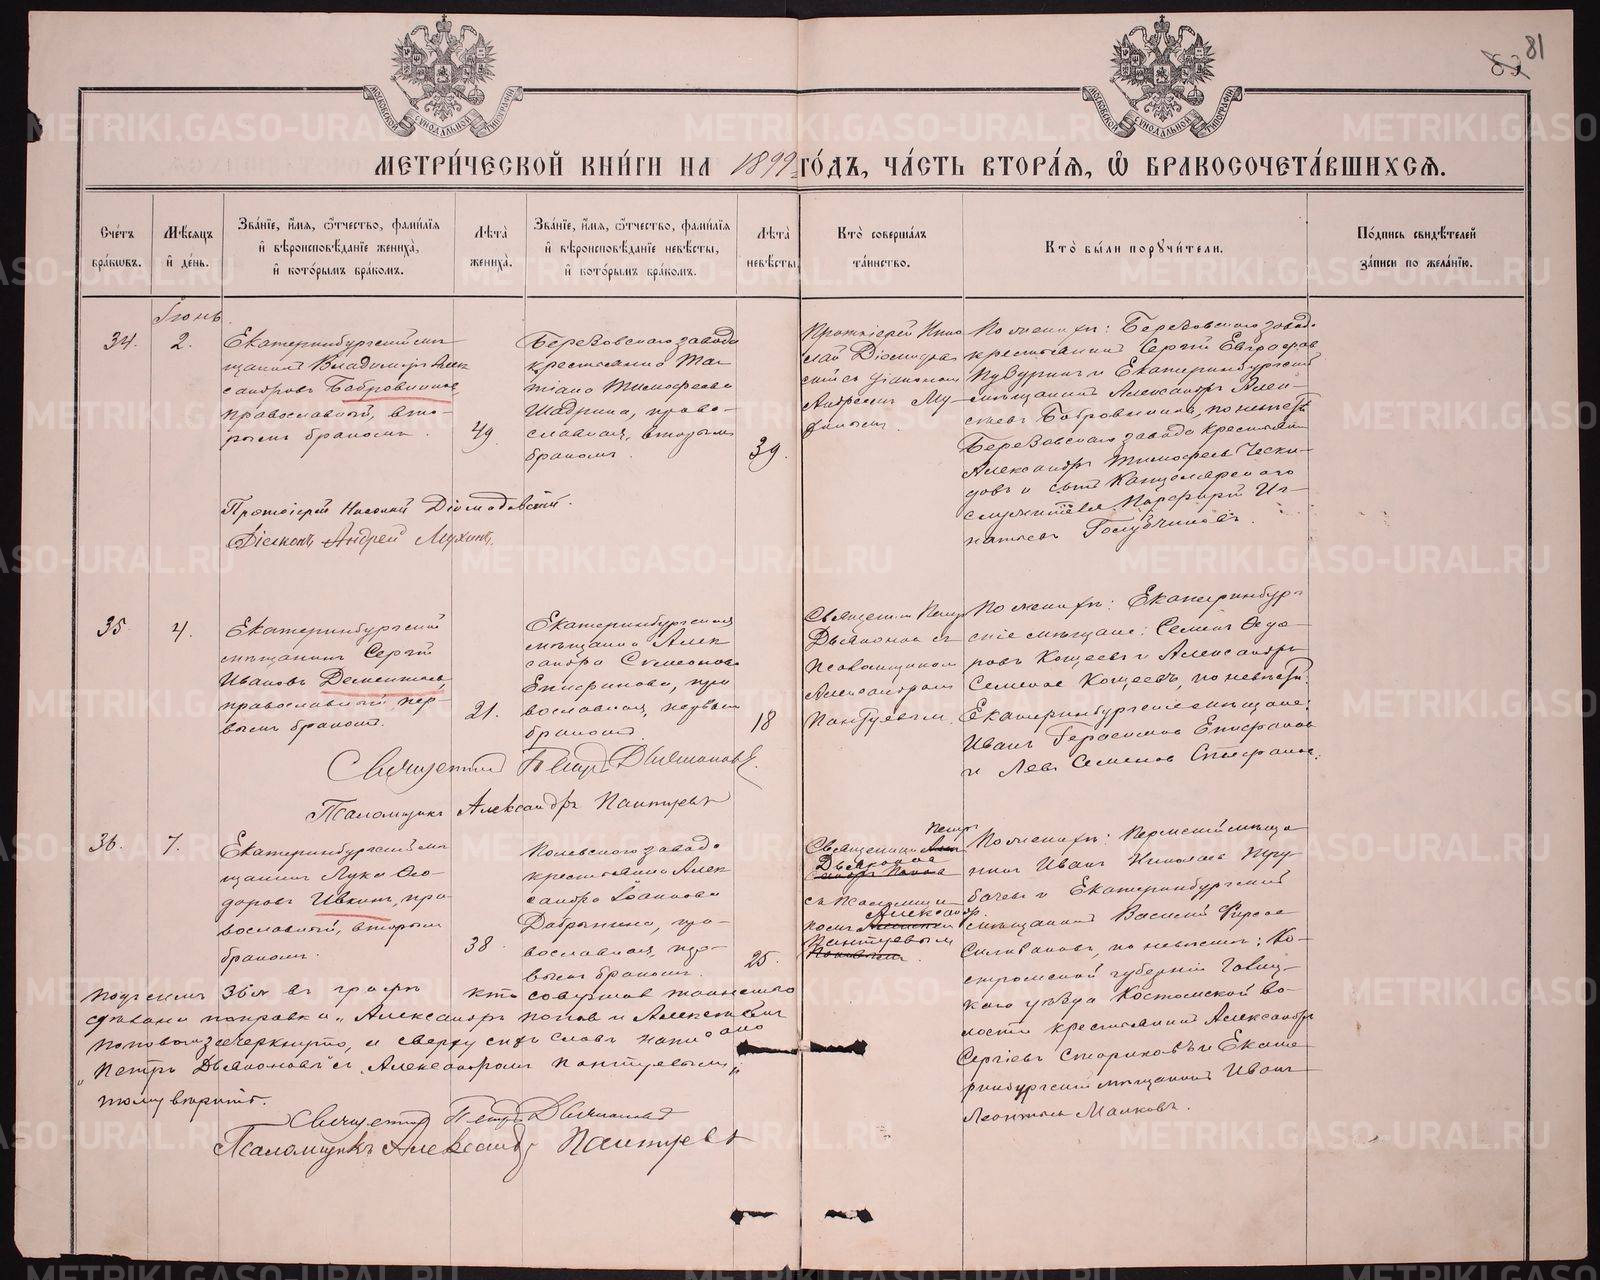 81
МЕТРИ́ЧЕСКОЙ КНИ́ГИ НА 1899 ГО́ДЪ, ЧА́СТЬ ВТОРА́Я, Ѽ БРАКОСОЧЕТА́ВШИХСЯ.
Сче́тъ бра́кѡвъ.
Мѣ́сяцъ и҆ де́нь.
Зва́нїе, и҆́мя, ѻ҆́тчество, фами́лїя и҆ вѣроисповѣ́данїе жениха̀, и҆ кото́рымъ бра́комъ.
Лѣ́та жениха̀.
Зва́нїе, и҆́мя, ѻ҆́тчество, фами́лїя и҆ вѣроисповѣ́данїе невѣ́сты, и҆ кото́рымъ бра́комъ.
Лѣ́та невѣ́сты.
Кто̀ соверша́лъ та́инство.
Кто̀ бы́ли порꙋчи́тели.
По́дпись свидѣ́телей за́писи по жела́нїю.
Іюнь
34.
2.
Екатеринбургскій мѣ-
щанинъ Владиміръ Алек-
сандровъ Бобровниковъ,
православный, вто-
рымъ бракомъ.
49.
Березовскаго завода
крестьянка Та-
тіана Тимофеева
Шадрина, право-
славная, вторымъ
бракомъ.
39.
Протоіерей Нико-
лай Діомидов-
скій съ діакономъ
Андреемъ Му-
хинымъ.
По женихѣ: Березовскаго завода
крестьянинъ Сергій Евграфов
и Екатеринбургскій
мѣщанинъ Александръ Алек-
сѣевъ Бобровниковъ, по невѣстѣ
Березовскаго завода крестьянин
Александръ Тимофеевъ Чески-
довъ и сынъ Канцелярскаго
служителя Порфирій Иг-
натьевъ Голубчиковъ.
Протоіерей Николай Діомидовскій.
Діаконъ Андрей Мухинъ.
35
4.
Екатеринбургскій
мѣщанинъ Сергій
Ивановъ Дементьевъ,
православный, пер-
вымъ бракомъ.
21.
Екатеринбургская
мѣщанка Алек
сандра Симеонова
Епифанова, пра
вославная, первым
бракомъ.
18
Священникъ Петръ
Дьяконовъ съ
псаломщикомъ
Александромъ
Пантуевымъ.
По женихѣ: Екатеринбург
скіе мѣщане: Семенъ Федо-
ровъ Кощеевъ и Александръ
Семеновъ Кощеевъ, по невѣстѣ:
Екатеринбургскіе мѣщане:
Иванъ Герасимовъ Епифановъ
и Левъ Семеновъ
Священникъ Петръ Дьяконовъ.
Псаломщикъ Александръ Пантуевъ
36.
7.
Екатеринбургскій мѣ-
щанинъ Лука Ѳео-
доровъ Ивкинъ, пра
вославный, вторымъ
бракомъ.
38
Полевскаго завода
крестьянка Алек
сандра Іоаннова
Добрынина, пра-
вославная, пер-
вымъ бракомъ.
25.
Петръ
Священникъ
Дьяконовъ
съ псаломщи
Александр.
комъ
Пантуевымъ
По женихѣ: Пермскій мѣща
нинъ Иванъ Николаевъ Тру-
бачевъ и Екатеринбургскій
мѣщанинъ Василій Фирсов
Силивановъ, по невѣстѣ: Ко-
стромской губерніи Галиц-
каго уѣзда Костомской во-
лости крестьянинъ Александръ
Сергіевъ Стариковъ и Екате
ринбургскій мѣщанинъ Иванъ
Леонтьевъ Малковъ.
Подъ симъ 36м въ графѣ кто совершалъ таинство
сдѣланы поправки „Александръ Поповъ и Алексѣемъ
Поповымъ" зачеркнуто, и сверху сихъ словъ написано
„Петръ Дьяконовъ" съ „Александромъ Пантуевымъ"
тому вѣрить.
Священникъ Петръ Дьяконовъ
Псаломщикъ Александръ Пантуевъ
METRIKI.GASO-URAL.RU